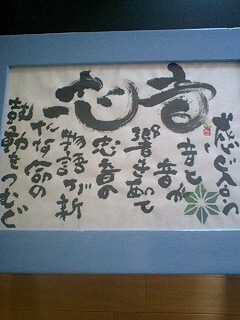 志音
感じ合う
音と
音が
響きあって
志音の
物語が新
たな命の
鼓動をつむぐ